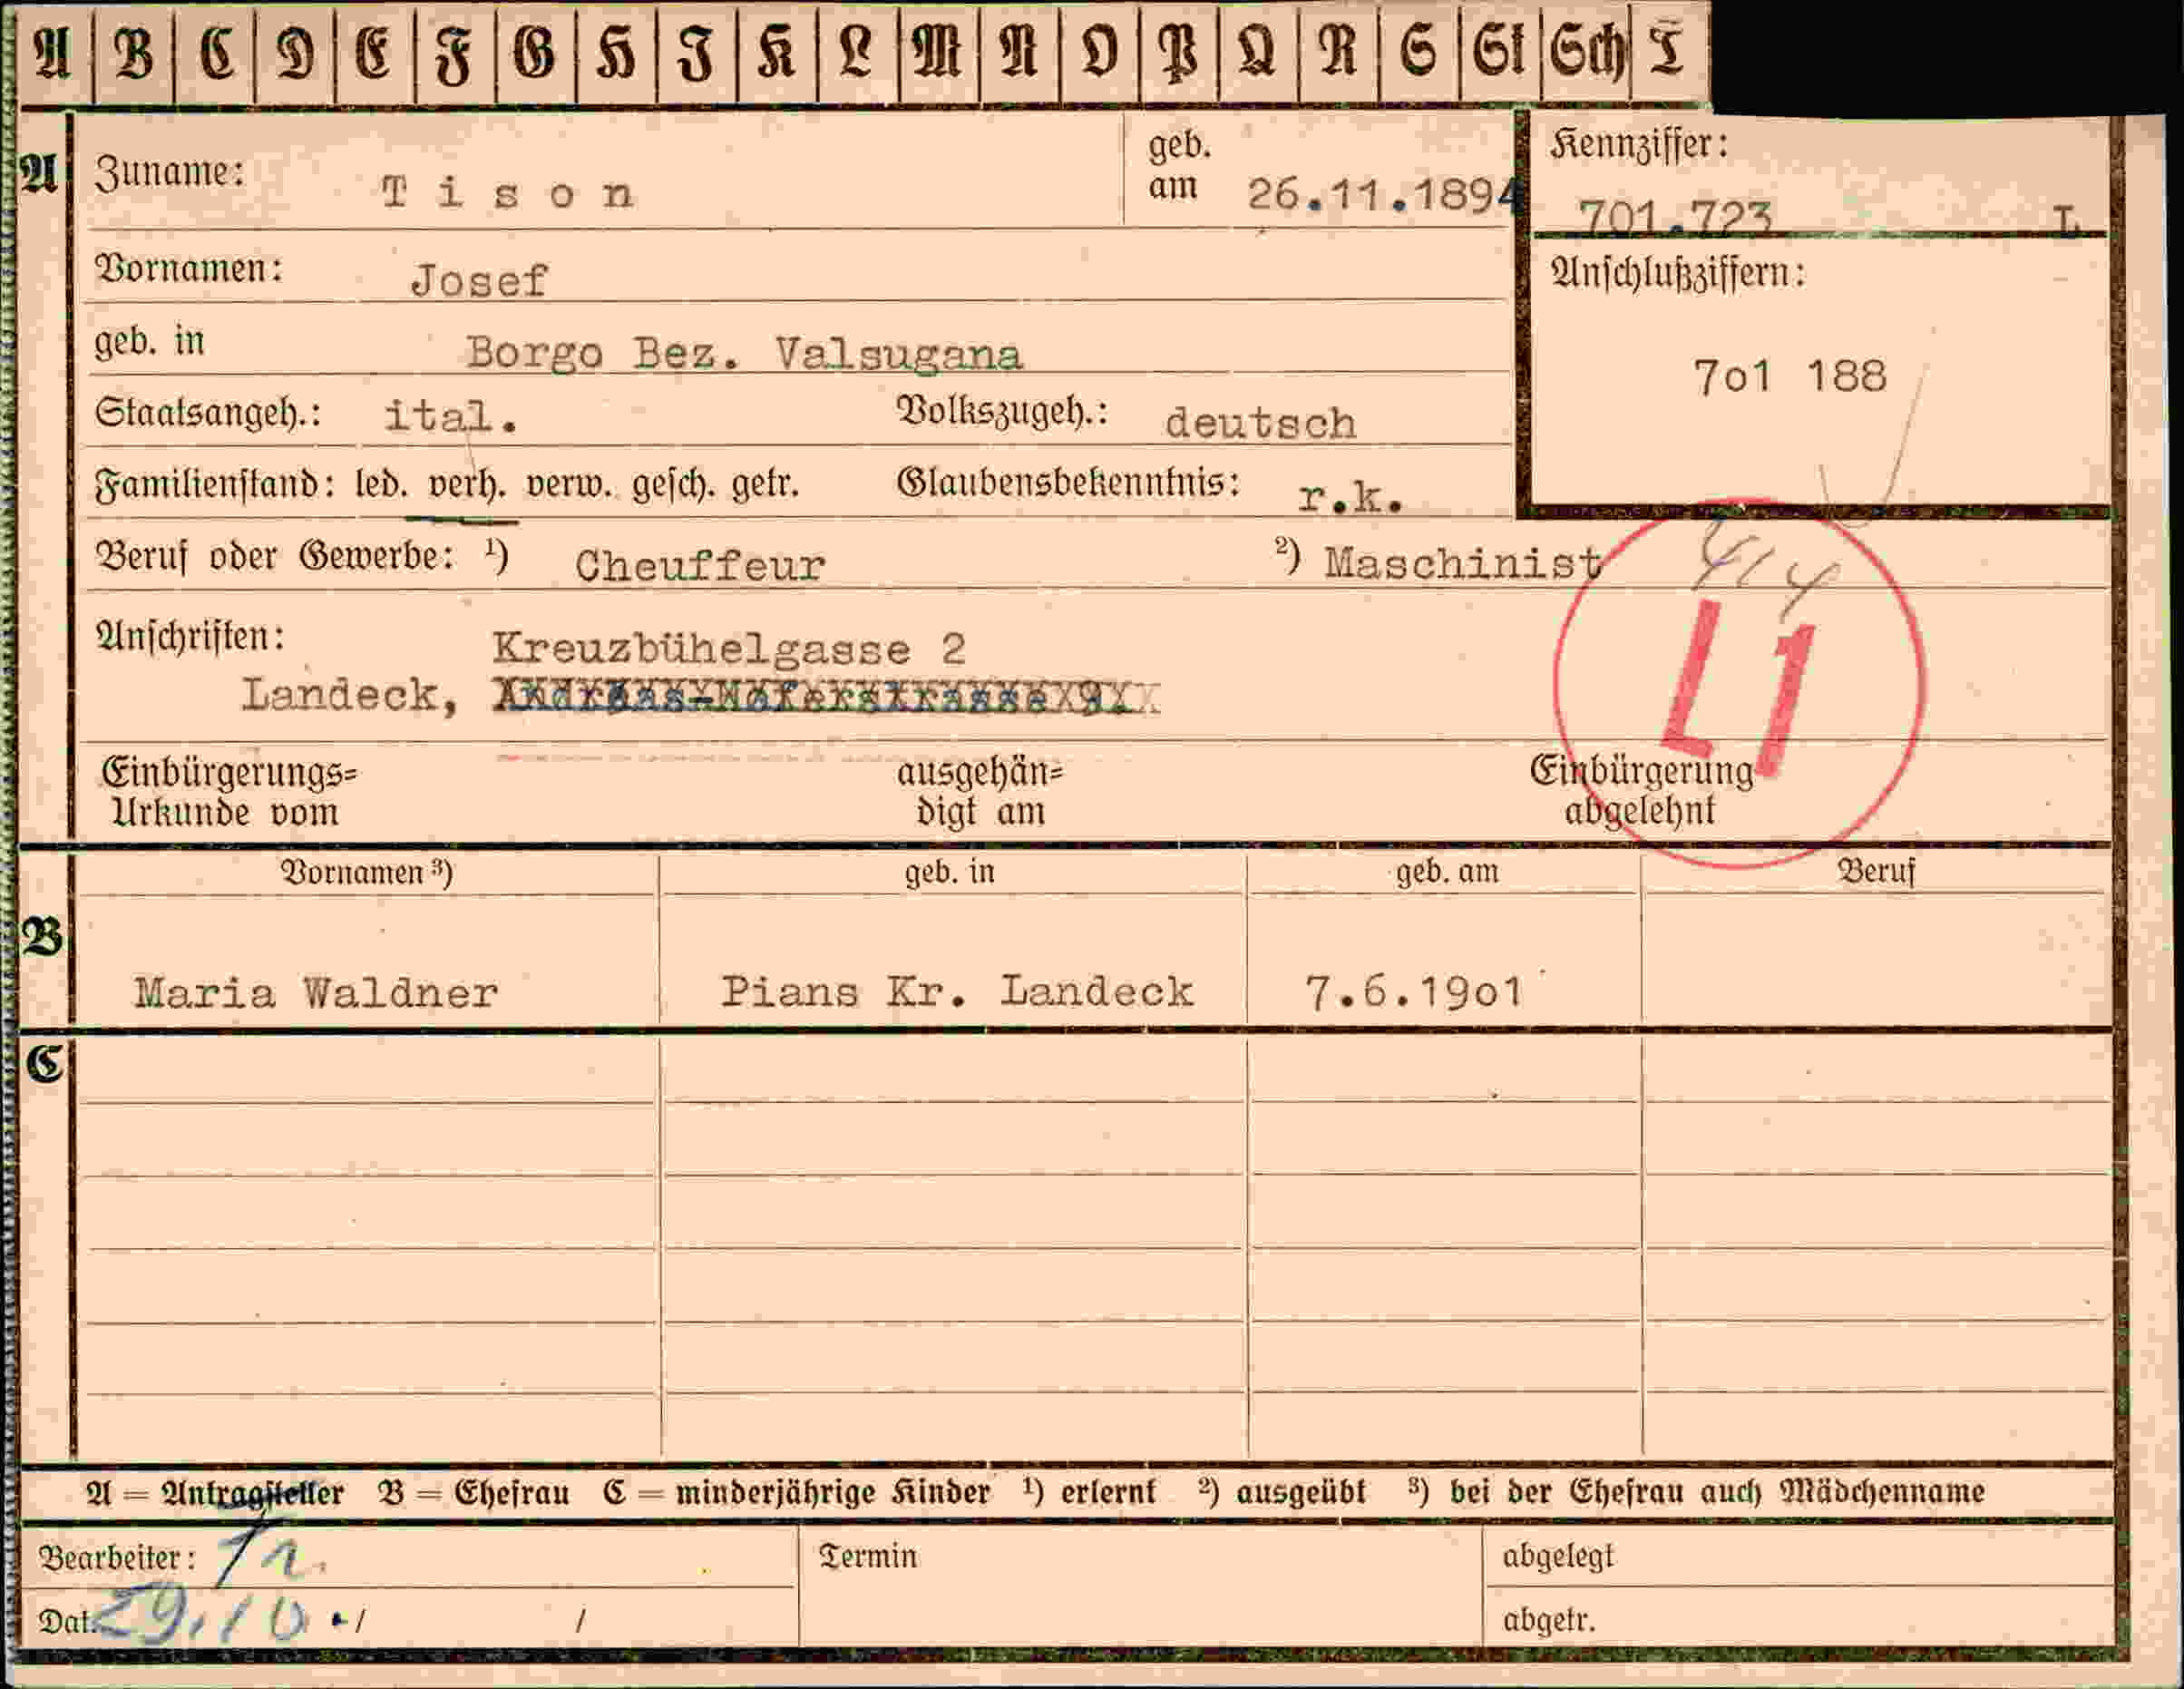 A B C D E F G H J K L M N O P Q R S St Sch T
A Zuname: Tison geb. am 26.11.1894 Kennziffer: 701.723 L
Vornamen: Josef Anschlußziffern:
geb. in Borgo Bez. Valsugana 7o1 188
Staatsangeh.: ital. Volkszugeh.: deutsch
Familienstand: led. verh. verw. gesch. getr. Glaubensbekenntnis: r.k.
Beruf oder Gewerbe: ¹) Cheuffeur ²) Maschinist
L1
Anschriften: Kreuzbühelgasse 2
Landeck,
Einbürgerungs= ausgehän= Einbürgerung
Urkunde vom digt am abgelehnt
Vornamen ³) geb. in geb. am Beruf
B
Maria Waldner Pians Kr. Landeck 7.6.19o1
C
A = Antragsteller B = Ehefrau C = minderjährige Kinder ¹) erlernt ²) ausgeübt ³) bei der Ehefrau auch Mädchenname
Bearbeiter: Termin abgelegt
Dat. 29.10. / / abgetr.